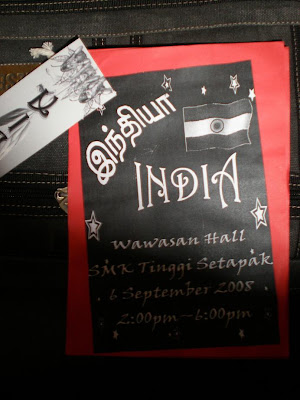 இந்தியா
INDIA
Wawasan Hall
SMK Tinggi Setapak
6 September 2008
2:00pm-6:00pm